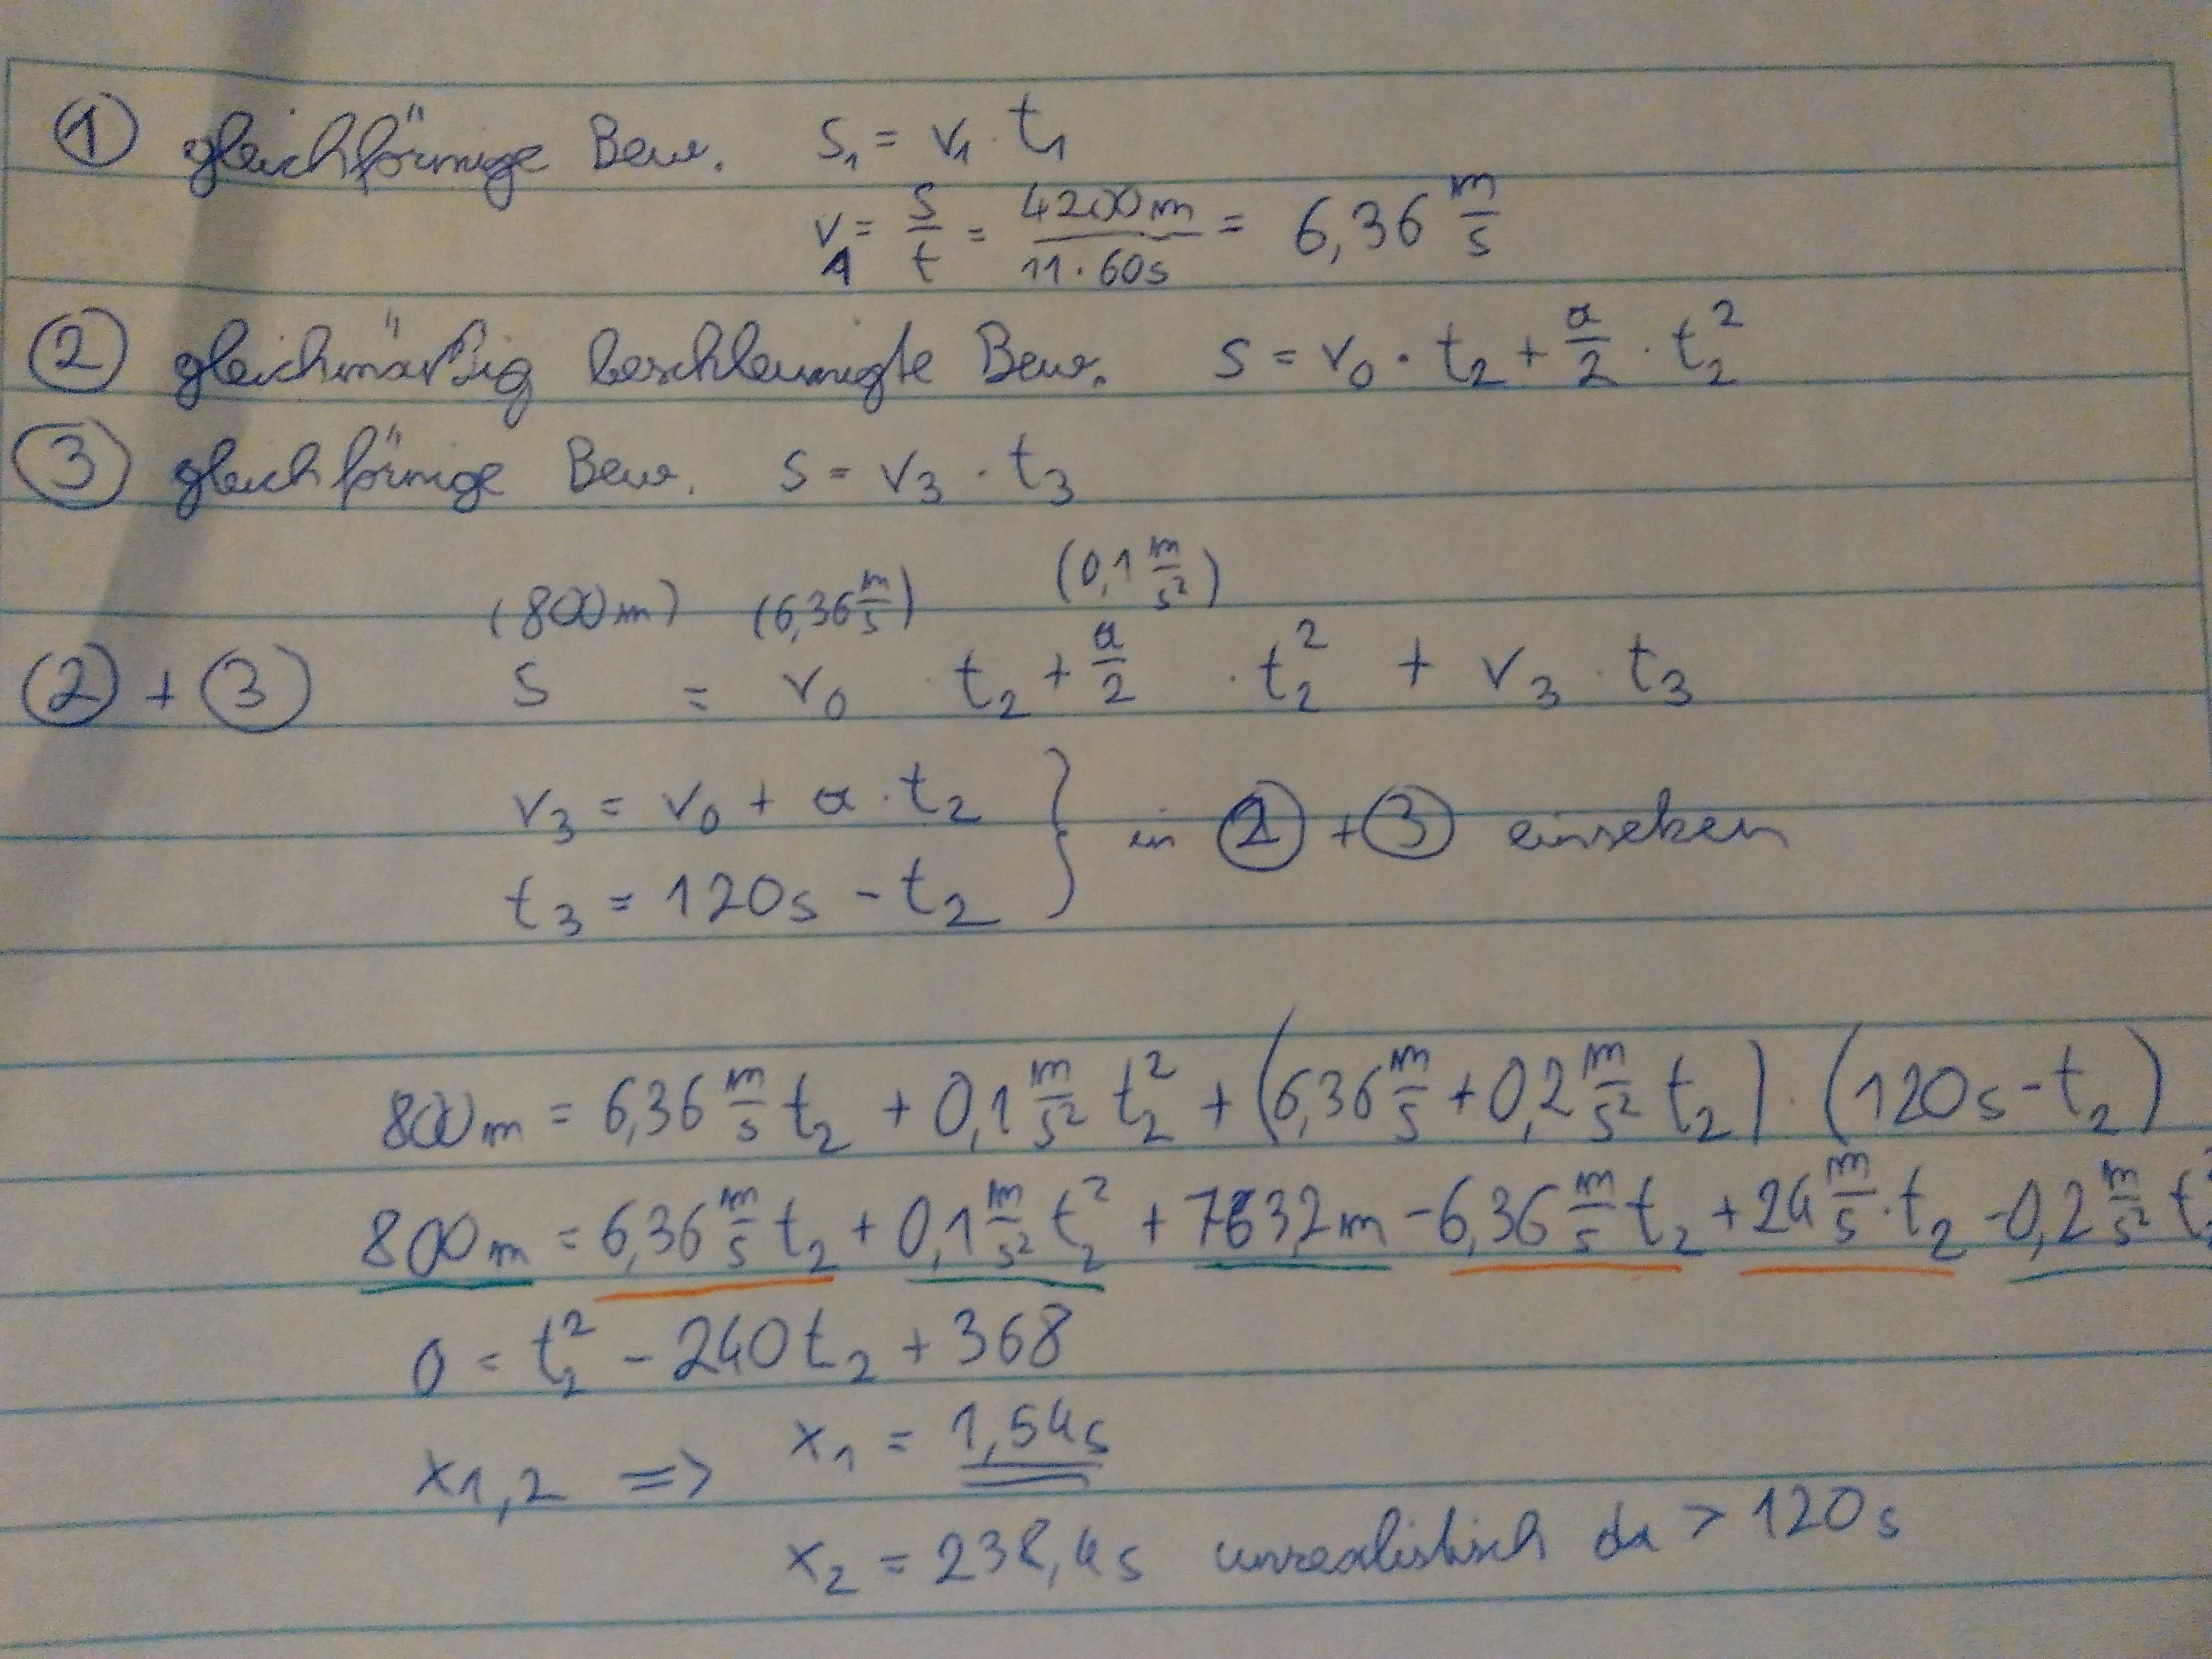 ① gleichförmige Bew. s₁ = v₁ · t₁
v₁ = s/t = 4200m/11·60s = 6,36 m/s
② gleichmäßig beschleunigte Bew. s = v₀ · t₂ + a/2 · t₂²
③ gleichförmige Bew. s = v₃ · t₃
(800m) (6,36 m/s) (0,1 m/s²)
② + ③ s = v₀ · t₂ + a/2 · t₂² + v₃ · t₃
v₃ = v₀ + a · t₂ } in ② + ③ einsetzen
t₃ = 120s - t₂
800m = 6,36 m/s t₂ + 0,1 m/s² t₂² + (6,36 m/s + 0,2 m/s² t₂) · (120s - t₂)
800m = 6,36 m/s t₂ + 0,1 m/s² t₂² + 763,2m - 6,36 m/s t₂ + 24 m/s · t₂ - 0,2 m/s² t₂²
0 = t₂² - 240t₂ + 368
x₁,₂ => x₁ = 1,54s
x₂ = 238,4s unrealistisch da > 120s